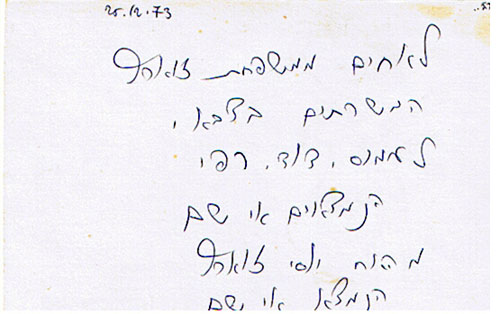 25.12.73
לאחים ממשפחת זוארץ
המשרתים בצבא,
לעמוס, דוד, רפי
הנמצאים אי שם
מהאח יוסי זוארץ
הנמצא אי שם